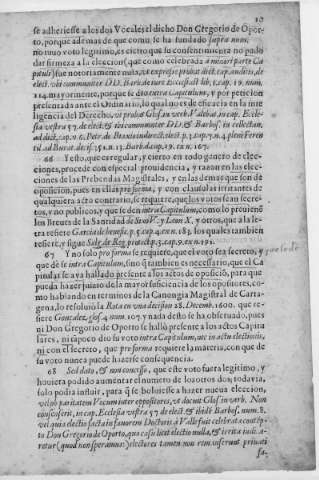 10
se adheriesse a los dos Vocales el dicho Don Gregorio de Opor-
to, porque ademas de que como se ha fundado supra num.
no tuuo voto legitimo, es cierto que su consentimiento no pudo
dar firmeza a la eleccion (que como celebrada à minori parte Ca
pituli) fue notoriamente nula, vt expresse probat dict. cap. auditis, de
elect. vbi communiter DD.
114. mayormente, porque se dio extra Capitulum, y por peticion
presentada ante el Ordinario, lo qual no es de eficacia en la inte
ligencia del Derecho, vt probat Glos. in verb. Valebat, in cap. Eccle-
sia vestra 57. de elect. & ibi communiter DD. & Barbos. in collectan.
66 Y esto, que es regular, y cierto en todo genero de elec-
ciones, procede con especial prouidencia, y razon en las elec-
ciones de las Prebendas Magistrales, y en las demas que son de
oposicion, pues en ellas pro forma, y con clausulas irritantes de
qualquiera acto contrario, se requiere, que los votos sean secre-
tos, y no publicos, y que se den intra Capitulum, como lo preuiene
los Breues de la Santidad de Sixto V. y Leon X. y otros, que a la le-
tra refiere Garcia de benefic. p. 5. cap. 4. ex n. 183. los quales tambien
refiere, y sigue Salg. de Reg. protect. p. 3. cap. 9. ex n. 191.
67 Y no solo pro forma se requiere, que el voto sea secreto, y
que dè se intra Capitulum, sino q tambien es necessario, que el Ca
pitular se aya hallado presente a los actos de oposiciò, para que
pueda hazer juizio de la mayor suficiencia de los opositores, co-
mo hablando en terminos de la Canongia Magistral de Carta-
gena, lo resoluiò la Rota en vna decision 28. Decemb. 1600. que re-
fiere Gonçalez, glos. 4. num. 107. y nada desto se ha obseruado, pues
ni Don Gregorio de Oporto se hallò presente a los actos Capitu
lares, ni tãpoco dio su voto intra Capitulum, aut in actu electionis,
ni con el secreto, que pro forma requiere la materia, con que de
su voto nunca puede hazerse consequencia.
68 Sed dato, & non concesso, que este voto fuera legitimo, y
huuiera podido aumentar el numero de los otros dos; todavia,
solo podia instuir, para q se boluiesse a hazer nueua eleccion,
velob paritatem Vocum inter oppositores, vt docuit Glos. in verb. Non
consenserit, in cap. Ecclesia vestra 57. de elect. & ibidè Barbos. num. 8.
vel quia electio facta in fauorem Doctoris à Valle fuit celebrata contèp-
to Don Gregorio de Oporto, quo casu licet electio nulla, & irrita iudic-
retur (quod non speramus) electores tamen non remanserunt priuati
fa-